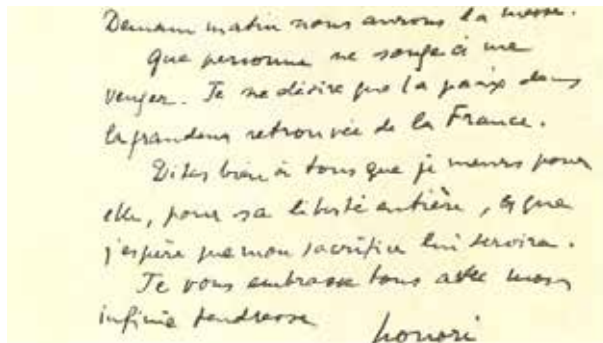 Demain matin nous aurons la messe.
Que personne ne songe à me
venger. Je ne désire que la paix dans
la grandeur retrouvée de la France.
Dites bien à tous que je meurs pour
elle, pour sa liberté entière, et que
j'espère que mon sacrifice lui servira.
Je vous embrasse tous avec mon
infinie tendresse
honoré